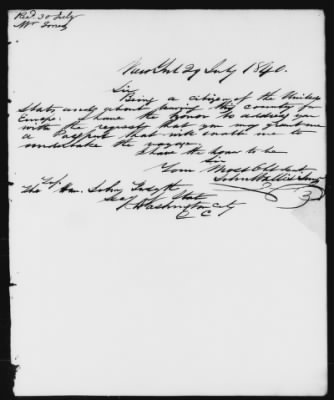 Rec'd 30 July
Mr Jones
New York 29 July 1840.
Sir
Being a citizen of the United
States and about leaving this country for
Europe. I have the honor to address you
with the request that you may grant me
a Passport that will enable me to
undertake the voyage.
I have the honor to be
Sir
Your Most Obt. Sert.
John Wallis
To
The Hon. John Forsyth
Secy State
Washington City
D C